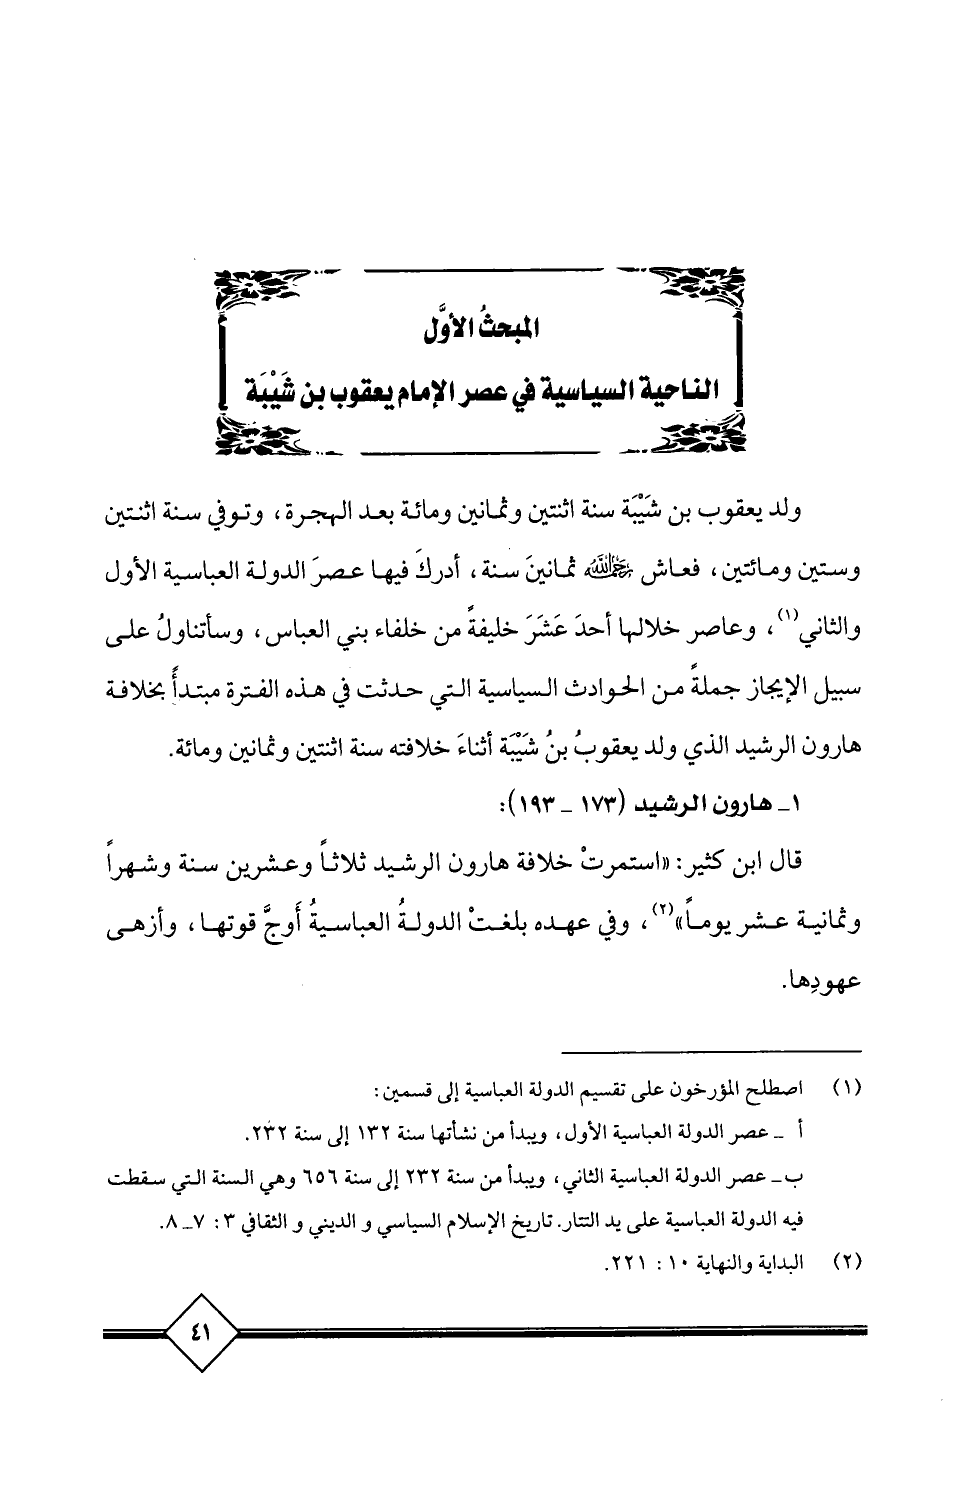 المبحثُ الأوَّل
الناحية السياسية في عصر الإمام يعقوب بن شَيْبَة
ولد يعقوب بن شَيْبَة سنة اثنتين وثمانين ومائة بعد الهجرة، وتوفي سنة اثنتين
وستين ومائتين، فعاش رحمه الله ثمانينَ سنة، أدركَ فيها عصرَ الدولة العباسية الأول
والثاني(١)، وعاصر خلالها أحدَ عَشَرَ خليفةً من خلفاء بني العباس، وسأتناولُ على
سبيل الإيجاز جملةً من الحوادث السياسية التي حدثت في هذه الفترة مبتدأً بخلافة
هارون الرشيد الذي ولد يعقوبُ بنُ شَيْبَة أثناءَ خلافته سنة اثنتين وثمانين ومائة.
١ـ هارون الرشيد (١٧٣ ـ ١٩٣):
قال ابن كثير: «استمرتْ خلافة هارون الرشيد ثلاثاً وعشرين سنة وشهراً
وثمانية عشر يوماً»(٢)، وفي عهده بلغتْ الدولةُ العباسيةُ أَوجَّ قوتها، وأزهى
عهودِها.
(١) اصطلح المؤرخون على تقسيم الدولة العباسية إلى قسمين:
أ ـ عصر الدولة العباسية الأول، ويبدأ من نشأتها سنة ١٣٢ إلى سنة ٢٣٢.
ب ـ عصر الدولة العباسية الثاني، ويبدأ من سنة ٢٣٢ إلى سنة ٦٥٦ وهي السنة التي سقطت
فيه الدولة العباسية على يد التتار. تاريخ الإسلام السياسي و الديني و الثقافي ٣: ٧ـ ٨.
(٢) البداية والنهاية ١٠: ٢٢١.
٤١